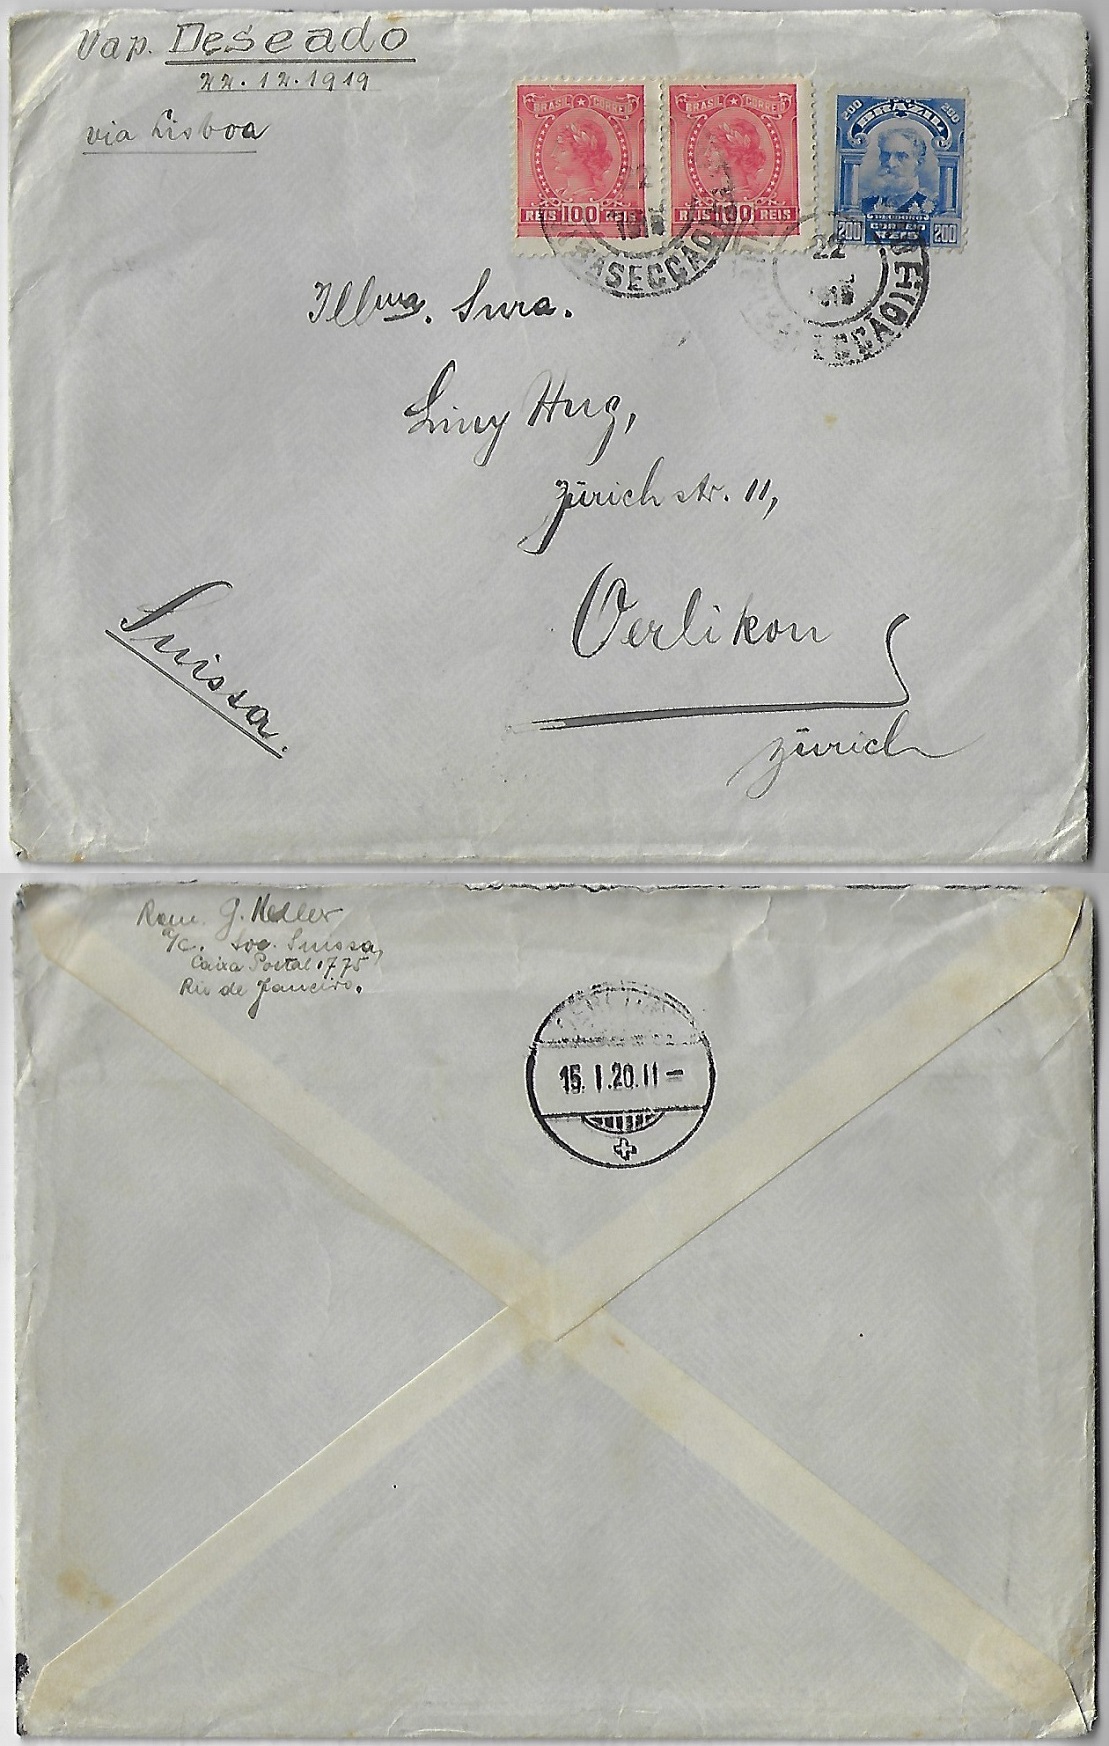 Vap. Deseado
22.12.1919
via Lisboa
BRASIL CORREIO
REIS 100 REIS
BRASIL CORREIO
REIS 100 REIS
200 200
BRAZIL
DEODORO
200 CORREIO 200
REIS
22
SECÇÃO
22
SECÇÃO
Illma. Snra.
Liny Hug,
Zürichstr. 11,
Oerlikon
Zürich
Suissa.
Rem. J. Keller
a/c. Soc. Suissa,
Caixa Postal 1775
Rio de Janeiro.
15. I. 20. 11 –